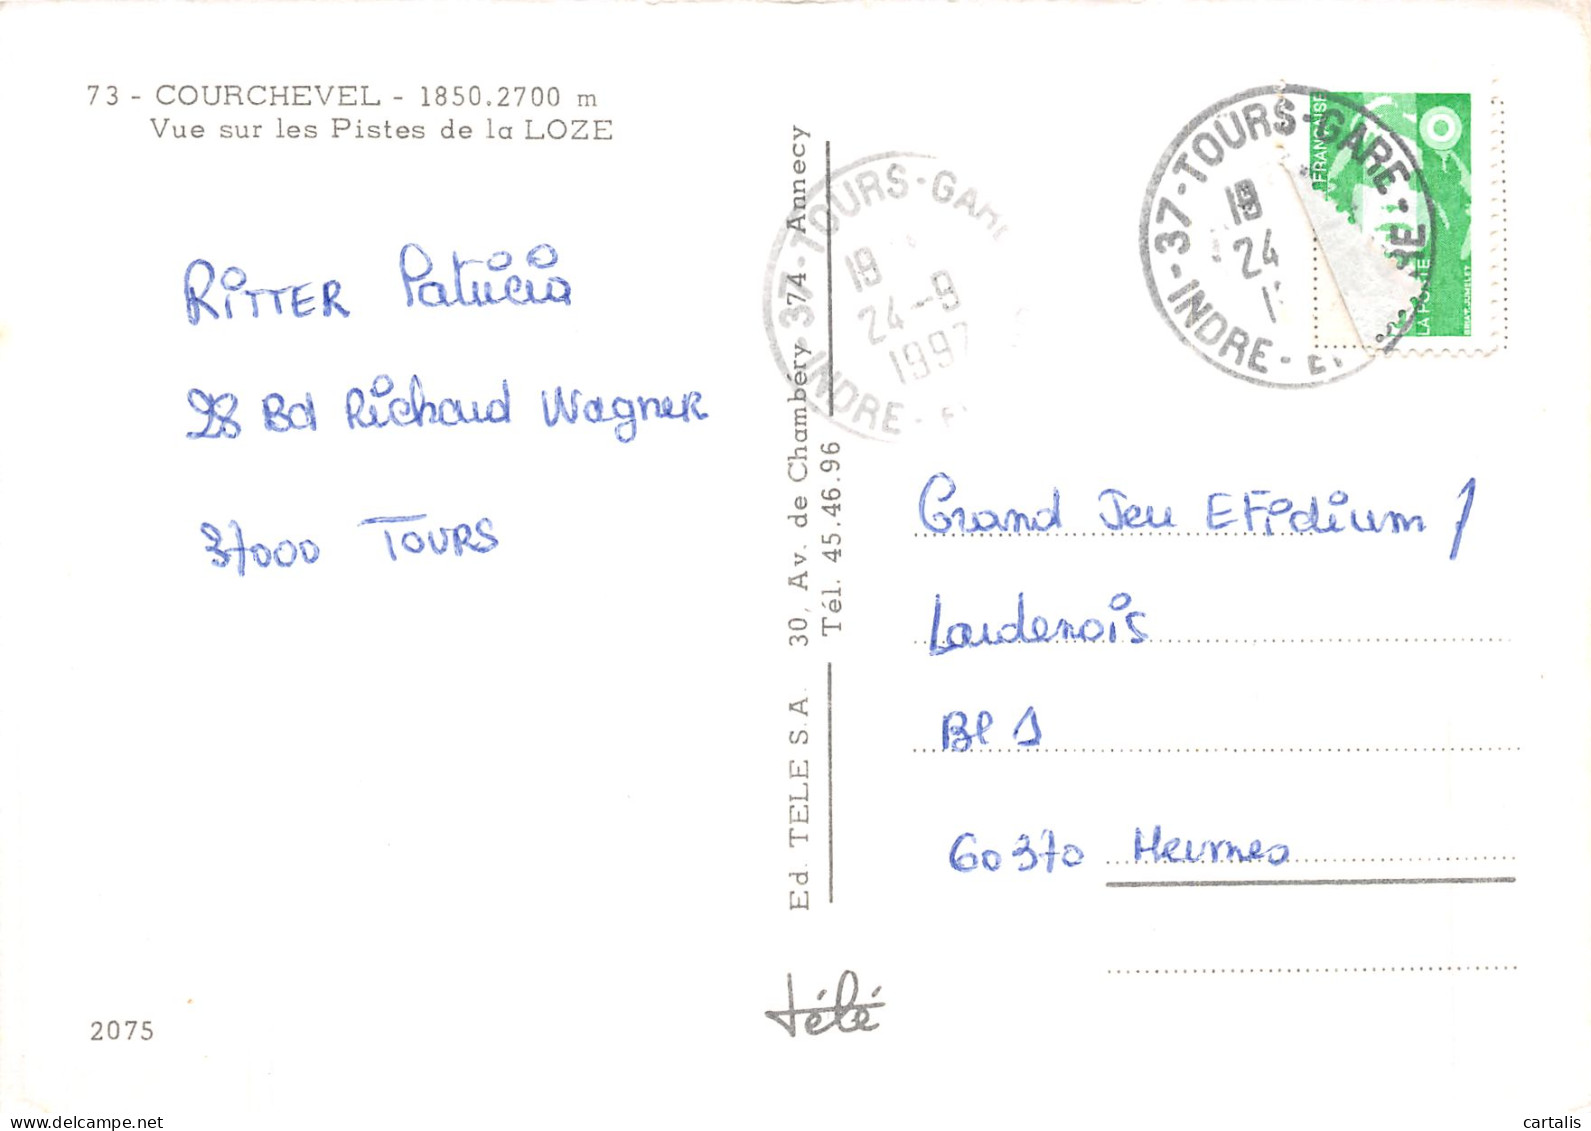 73 - COURCHEVEL - 1850.2700 m
Vue sur les Pistes de la LOZE
RITTER Patricia
28 Bd Richard Wagner
37000 TOURS
2075
Ed. TELE S.A. 30, Av. de Chambéry 74 Annecy
Tél. 45.46.96
télé
37-TOURS-GARE
19
24-9
1997
INDRE-
37-TOURS-GARE-
19
24
1
INDRE-E
FRANÇAISE
LA POSTE
BRIAT.JUMELET
Grand Jeu Efidium /
Laudenois
BP 1
60370 Hermes
cartalis
delcampe.net